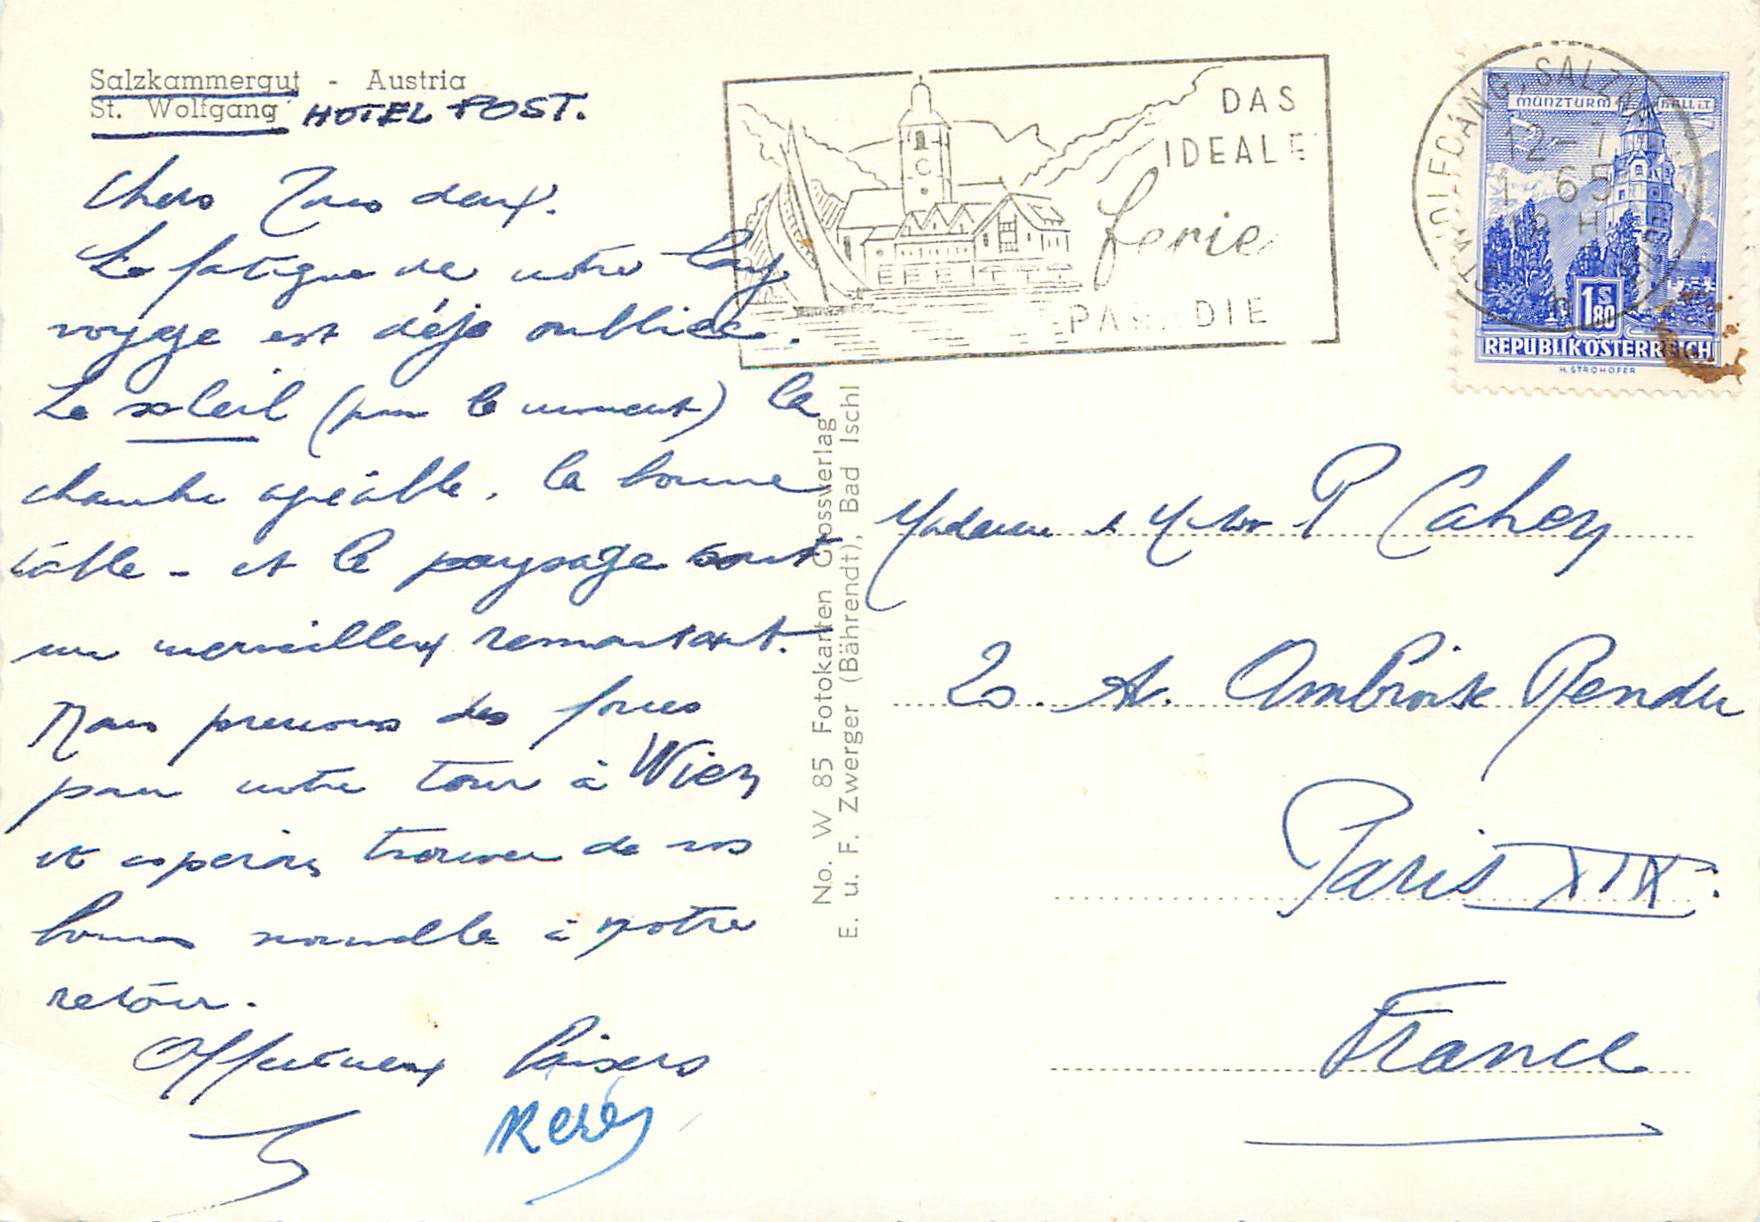 Salzkammergut - Austria
St. Wolfgang HOTEL POST.
Chers Tous deux.
La fatigue de notre long
voyage est déjà oubliée.
Le soleil (pour le moment) la
chambre agréable, la bonne
table - et le paysage sont
un merveilleux remontant.
Nous prenons des forces
pour notre tour à Wien
et espérons trouver de vos
bonnes nouvelle à notre
retour.
Affectueux baisers
DAS
IDEALE
Ferie
PA DIE
ST. WOLFGANG, SALZK
12-1
65
18 H
MÜNZTURM HALL i.T.
1 S 80
REPUBLIK ÖSTERREICH
H. STROHOFER
No. W 85 Fotokarten Grossverlag
E. u. F. Zwerger (Bährendt), Bad Ischl
Madame & P Cahen
20. Av. Ambroise Rendu
Paris XIX.
France